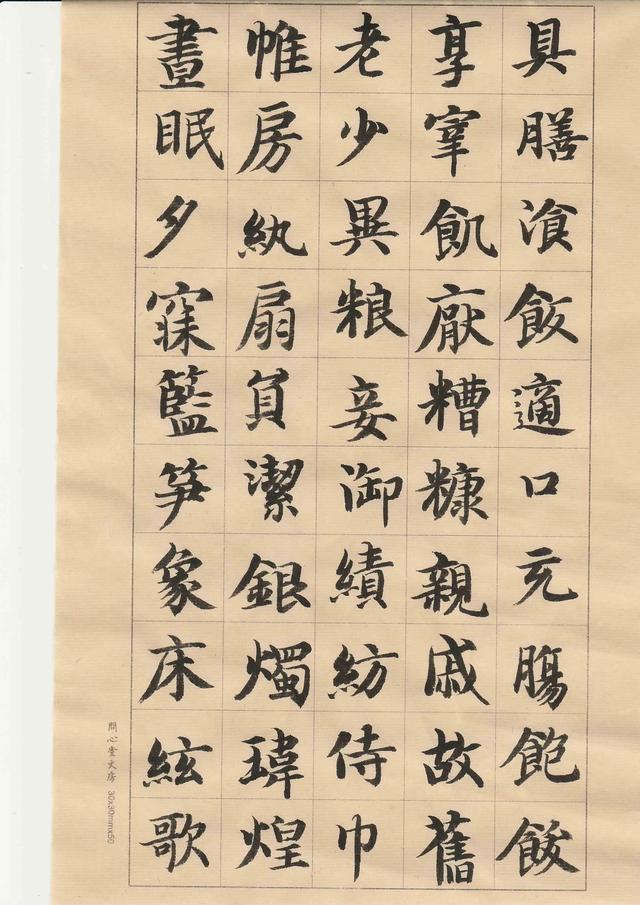 具膳湌飯適口充膓飽飫
享宰飢厭糟糠親戚故舊
老少異粮妾御績紡侍巾
帷房紈扇員潔銀燭瑋煌
晝眠夕寐籃笋象床絃歌
問心堂文房 30x30mmx50